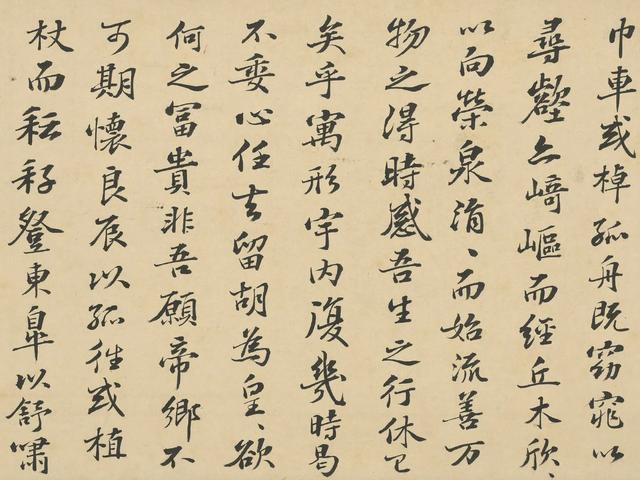 巾車或棹孤舟既窈窕以
尋壑亦崎嶇而經丘木欣、
以向榮泉涓、而始流善万
物之得時感吾生之行休已
矣乎寓形宇內復幾時曷
不委心任去留胡為皇、欲
何之富貴非吾願帝鄉不
可期懷良辰以孤往或植
杖而耘耔登東皐以舒嘯